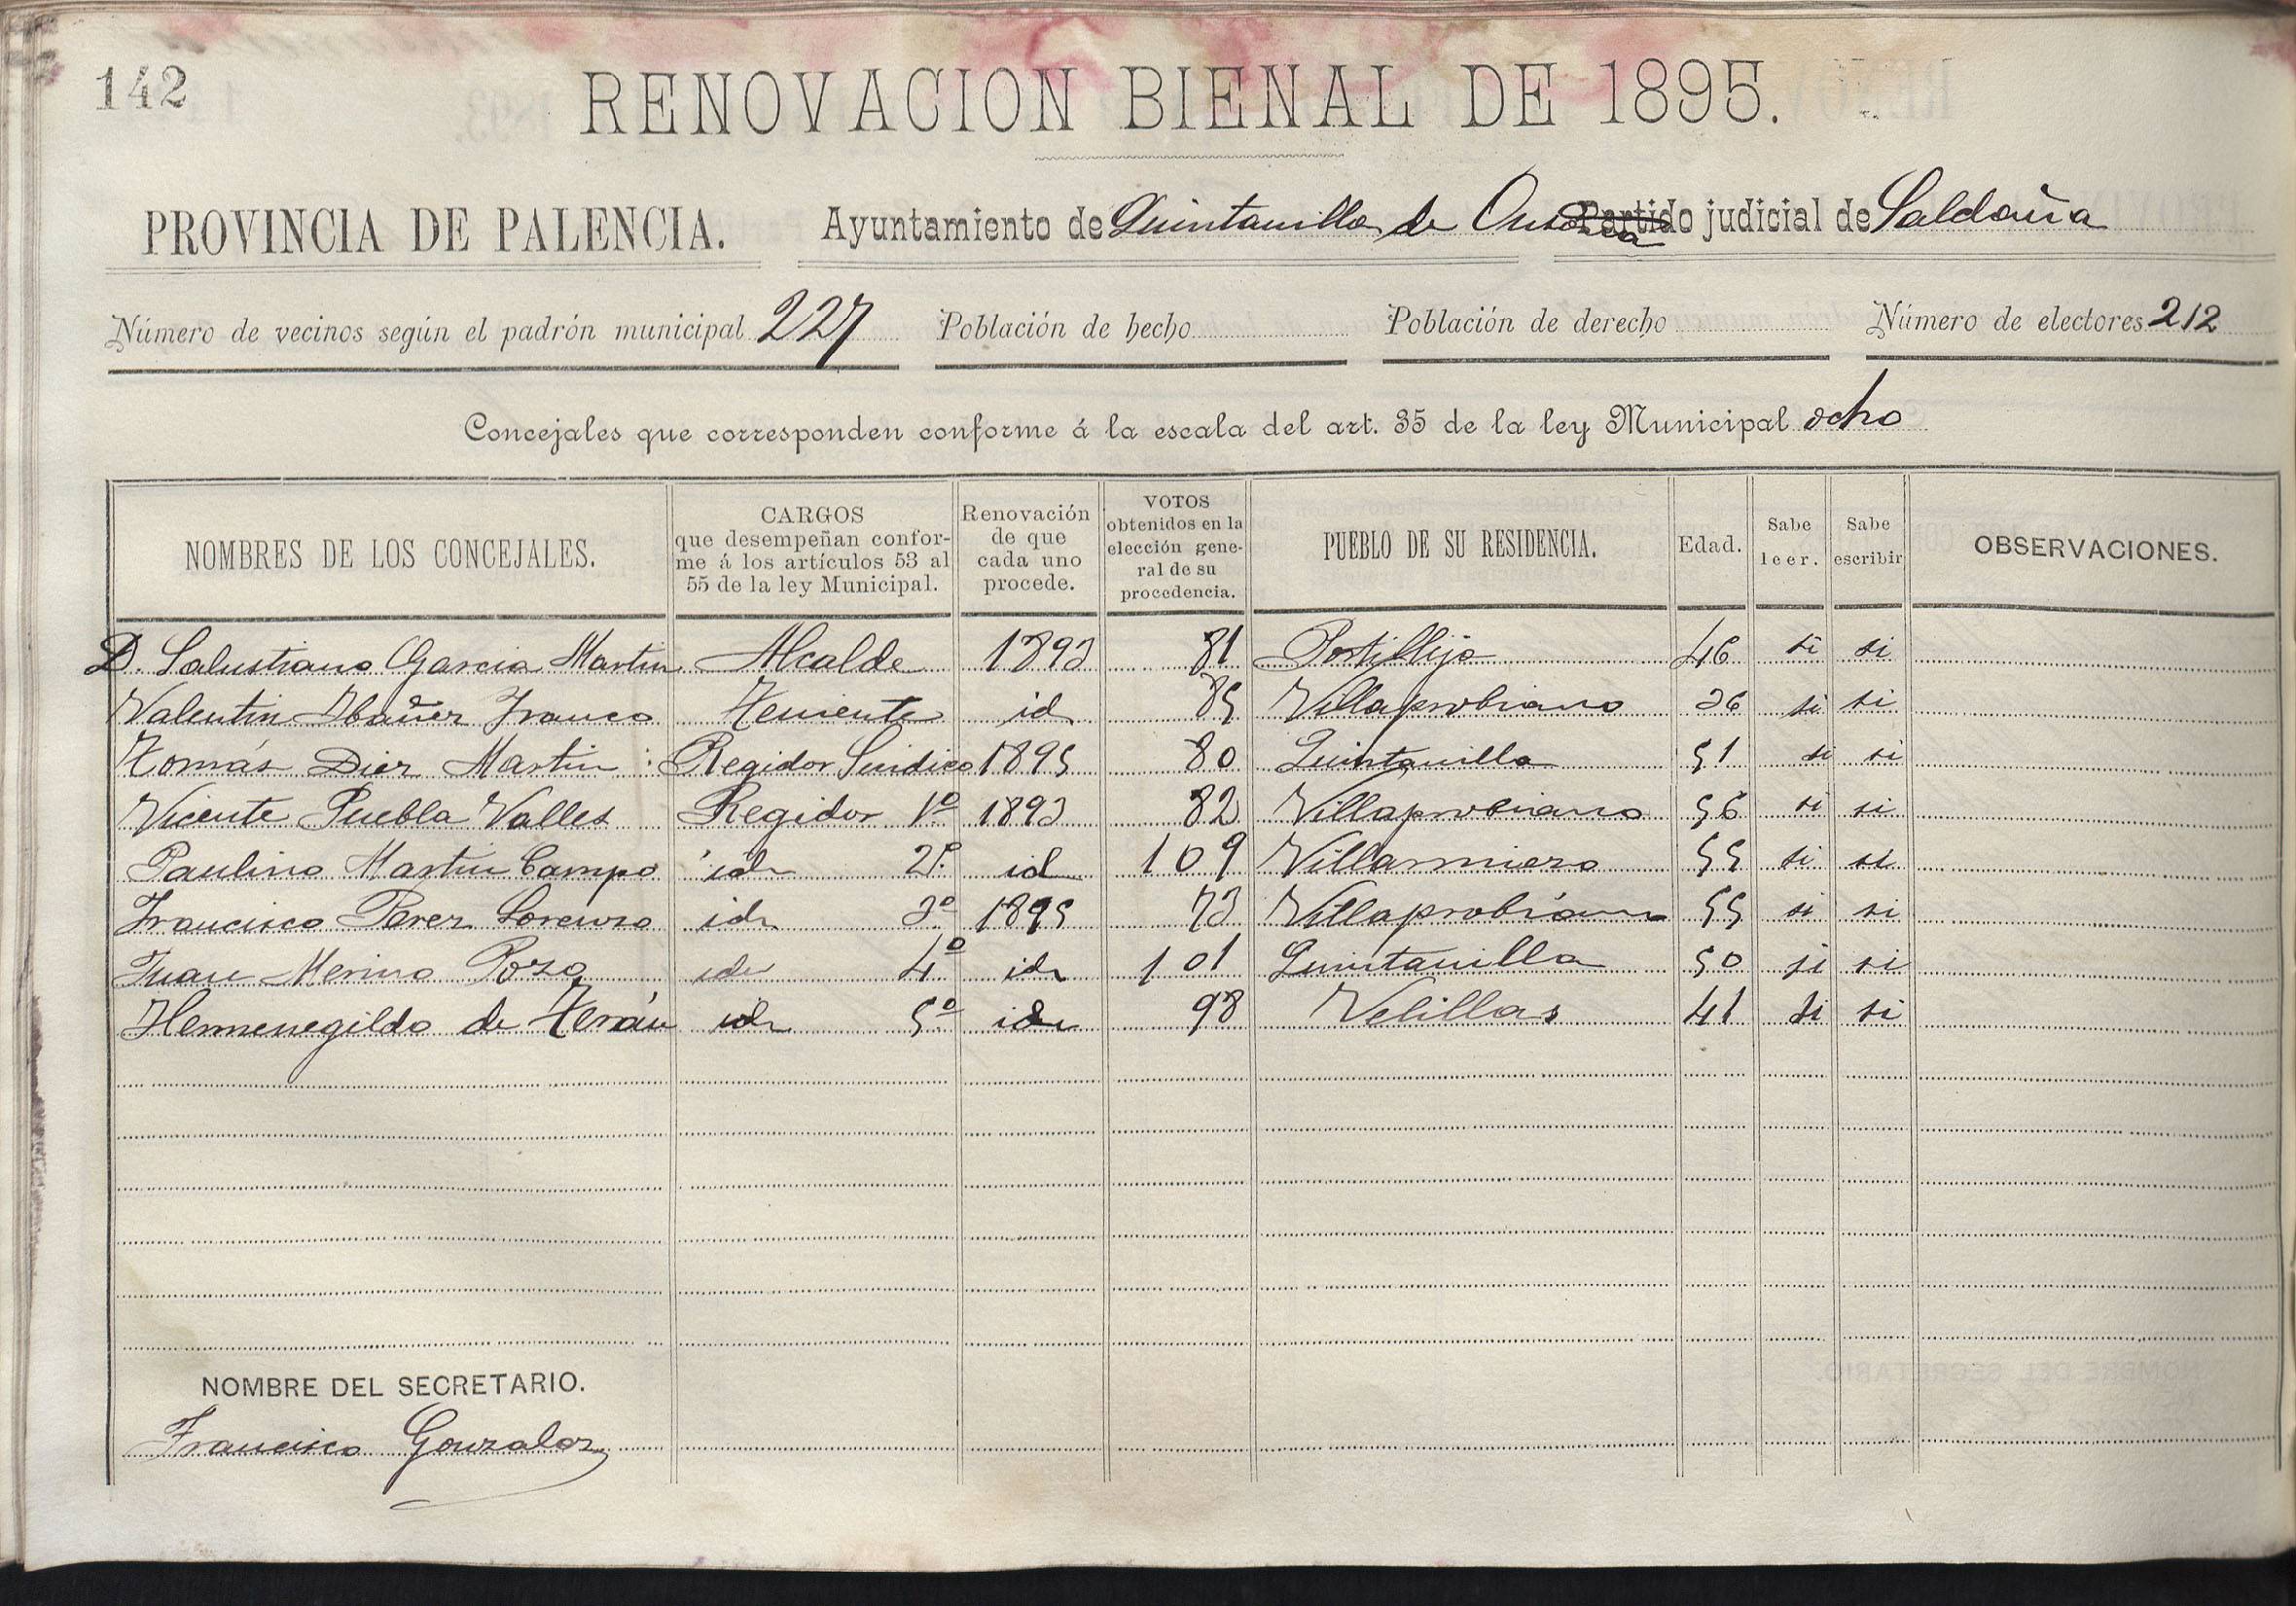 142
RENOVACION BIENAL DE 1895.
PROVINCIA DE PALENCIA. Ayuntamiento de Quintanilla de Onsoña Partido judicial de Saldaña
Número de vecinos según el padrón municipal 227 Población de hecho Población de derecho Número de electores 212
Concejales que corresponden conforme á la escala del art. 35 de la ley Municipal ocho
NOMBRES DE LOS CONCEJALES. CARGOS que desempeñan conforme á los artículos 53 al 55 de la ley Municipal. Renovación de que cada uno procede. VOTOS obtenidos en la elección general de su procedencia. PUEBLO DE SU RESIDENCIA. Edad. Sabe leer. Sabe escribir OBSERVACIONES.
D. Salustiano Garcia Martin Alcalde 1893 81 Portillejo 46 si si
Valentin Ibañez Franco Teniente id 85 Villaprobiano 36 si si
Tomás Diez Martin Regidor Sindico 1895 80 Quintanilla 51 si si
Vicente Puebla Valles Regidor 1º 1893 82 Villaprobiano 56 si si
Paulino Martin Campo id 2º id 109 Villarmiero 55 si si
Francisco Perez Lorenzo id 3º 1895 73 Villaprobiano 55 si si
Juan Merino Pozo id 4º id 101 Quintanilla 50 si si
Hermenegildo de Terán id 5º id 98 Velillas 41 si si
NOMBRE DEL SECRETARIO.
Francisco Gonzalez